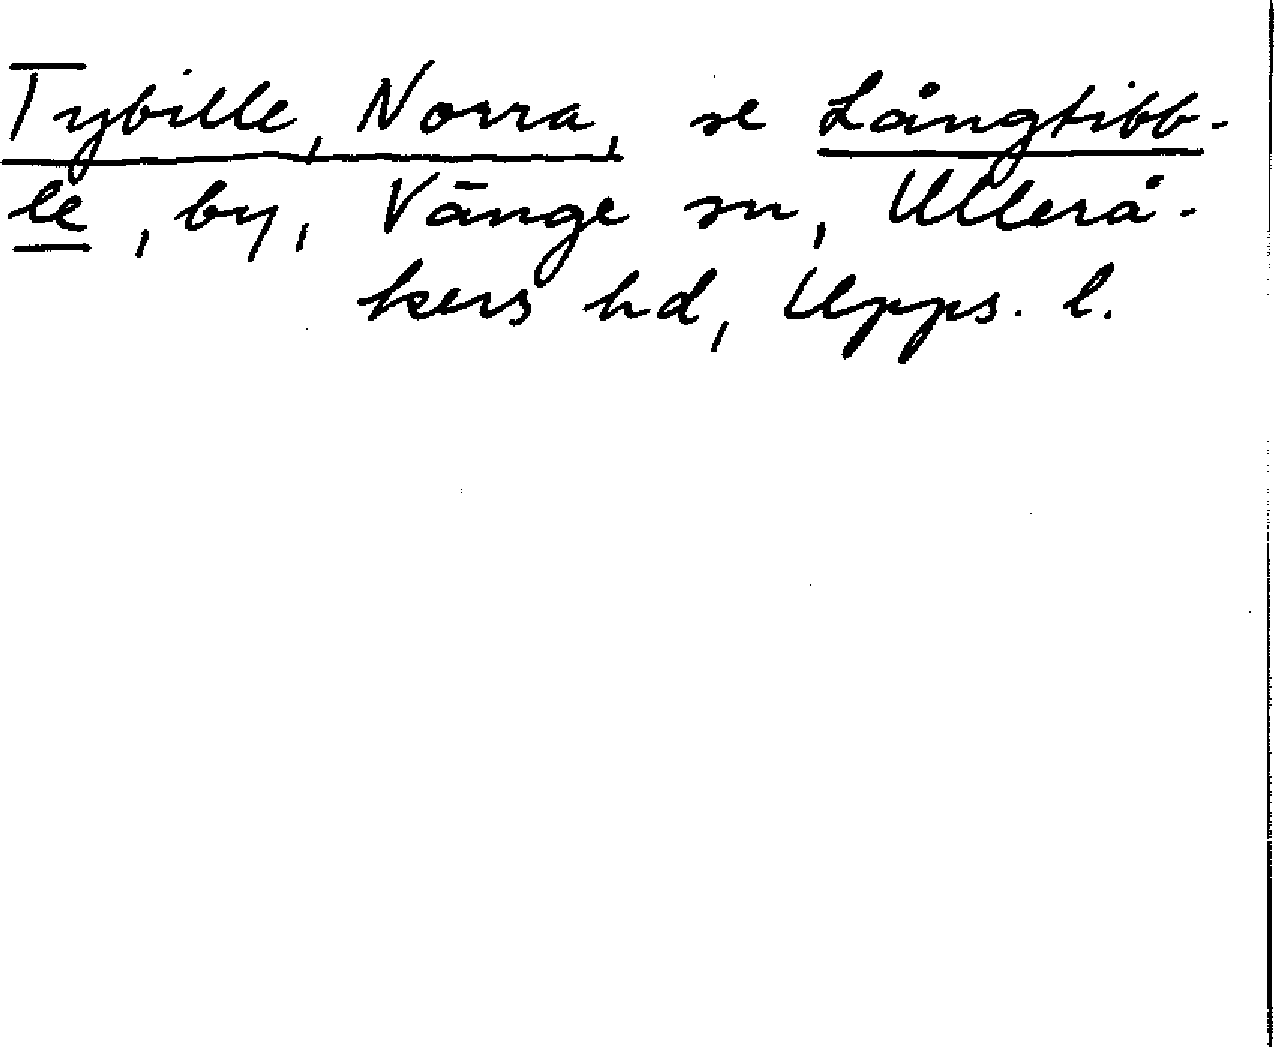 Tybille, Norra, se Långtibb-
le, by, Vänge sn, Ullerå-
kers hd, Upps. l.